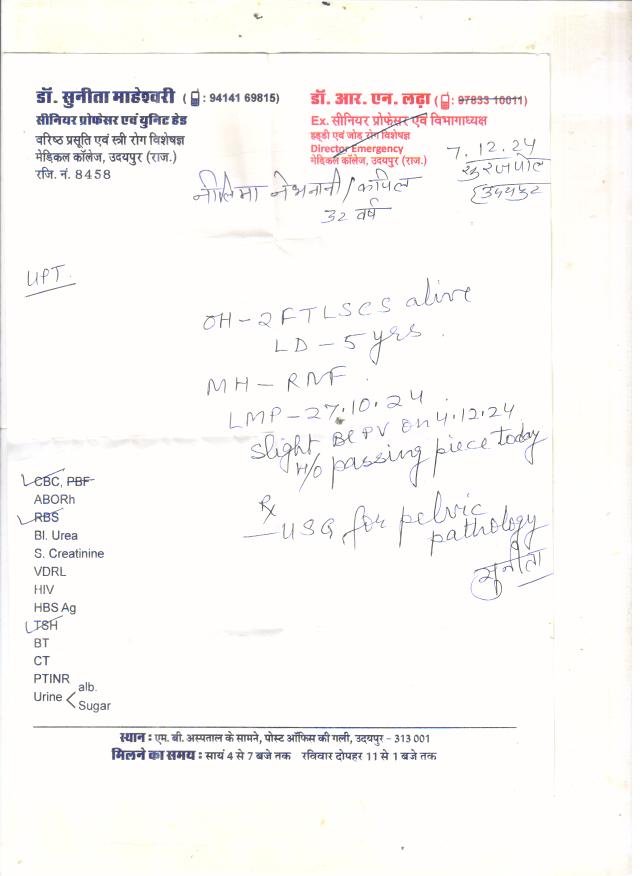 डॉ. सुनीता माहेश्वरी ( : 94141 69815)
सीनियर प्रोफेसर एवं युनिट हेड
वरिष्ठ प्रसूति एवं स्त्री रोग विशेषज्ञ
मेडिकल कॉलेज, उदयपुर (राज.)
रजि. नं. 8458
डॉ. आर. एन. लढ़ा ( : 97833 10011)
Ex. सीनियर प्रोफेसर एवं विभागाध्यक्ष
हड्डी एवं जोड़ रोग विशेषज्ञ
Director Emergency
मेडिकल कॉलेज, उदयपुर (राज.)
7.12.24
सुरजपोल
उदयपुर
नीलिमा नेभनानी / कपिल
32 वर्ष
UPT.
OH - 2 FTLSCS alive
LD - 5 yrs.
MH - RNF.
LMP - 27.10.24
slight Bl PV on 4.12.24
H/O passing piece today
Rx
— USG for pelvic
pathology
सुनीता
CBC, PBF
ABORh
RBS
Bl. Urea
S. Creatinine
VDRL
HIV
HBS Ag
TSH
BT
CT
PTINR
Urine < alb.
Sugar
स्थान : एम. बी. अस्पताल के सामने, पोस्ट ऑफिस की गली, उदयपुर - 313 001
मिलने का समय : सायं 4 से 7 बजे तक रविवार दोपहर 11 से 1 बजे तक